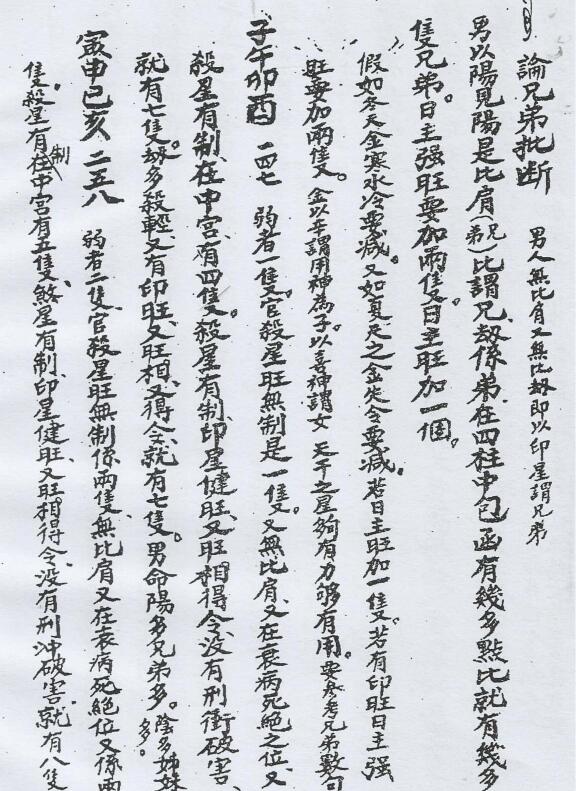 論兄弟批断 男人無比肩又無比劫即以印星謂兄弟
男以陽見陽是比肩（兄弟）比謂兄、劫係弟、在四柱中包函有幾多點比就有幾多
隻兄弟。日主强旺要加兩隻。日主旺加一個。
假如冬天金寒水冷要减。又如夏天之金失令要减。若日主旺加一隻。若有印旺日主强
旺要加兩隻。金以辛謂用神為子。以喜神謂女 天干之星夠有力够有用。要参考兄弟數可
子午卯酉 一四七 弱者一隻。官殺星旺無制是一隻。又無比肩、又在衰病死絕之位、又
殺星有制、在中宫、有四隻。殺星有制、印星健旺、又旺相得令、没有刑衝破害、
就有七隻。劫多殺輕又有印旺、又旺相、又得令、就有七隻。男命陽多兄弟多。陰多姊妹多。
寅申巳亥 二五八 弱者二隻、官殺星旺無制係兩隻、無比肩又在衰病死絕位又係兩
隻。殺星有制在中宫有五隻、煞星有制、印星健旺、又旺相得令、没有刑冲破害、就有八隻